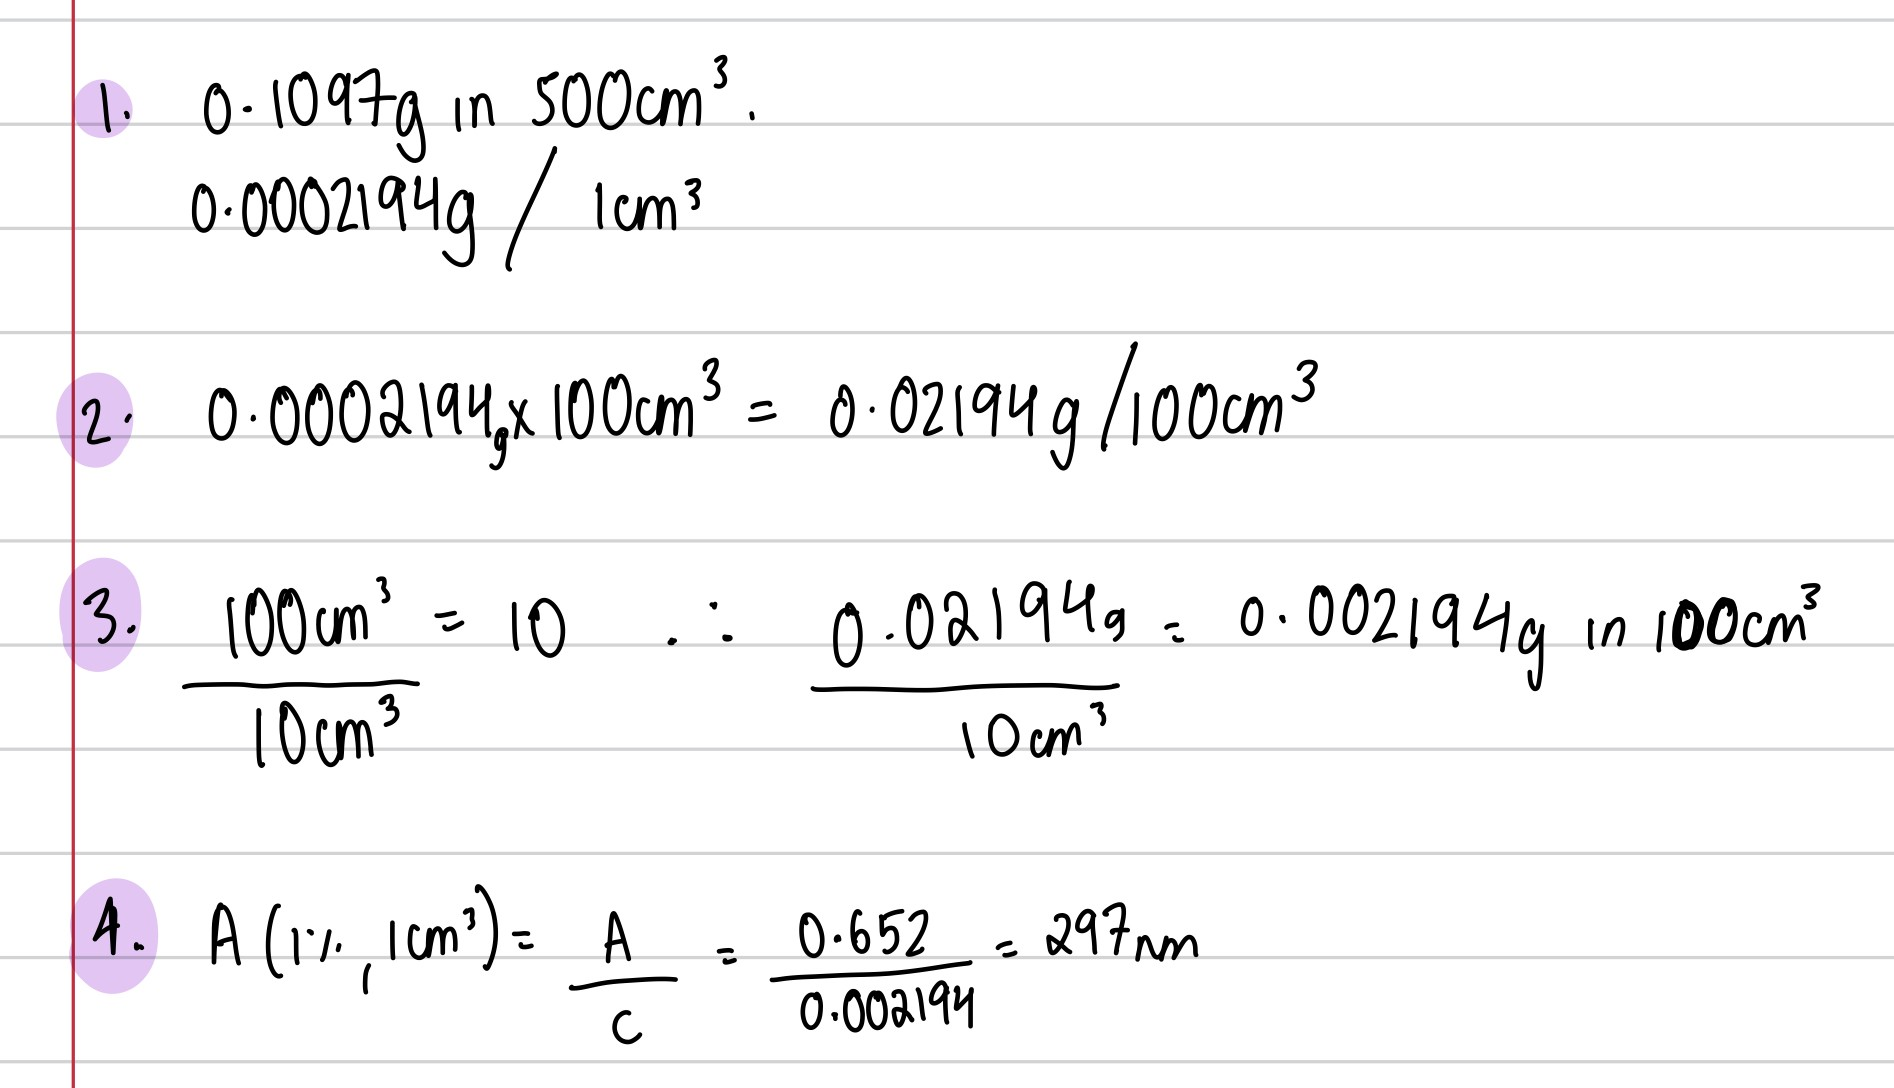 1. 0.1097g in 500cm³.
0.0002194g / 1cm³
2. 0.0002194g x 100cm³ = 0.02194g/100cm³
3. 100cm³/10cm³ = 10 ∴ 0.02194g/10cm³ = 0.002194g in 100cm³
4. A (1%, 1cm³) = A/C = 0.652/0.002194 = 297nm